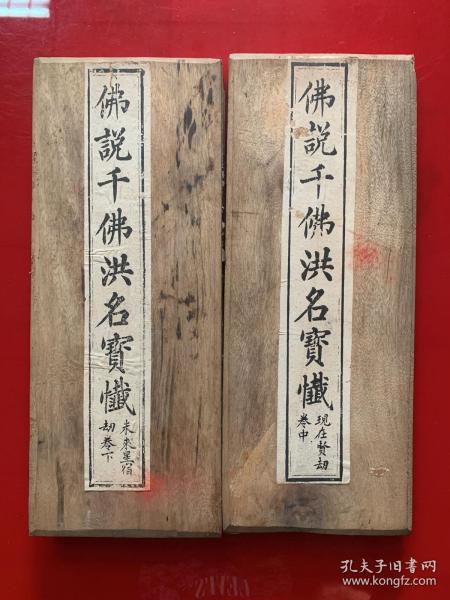 佛説千佛洪名寳懺
現在賢劫
卷中
佛説千佛洪名寳懺
未來星宿
劫卷下
孔夫子旧书网
www.kongfz.com